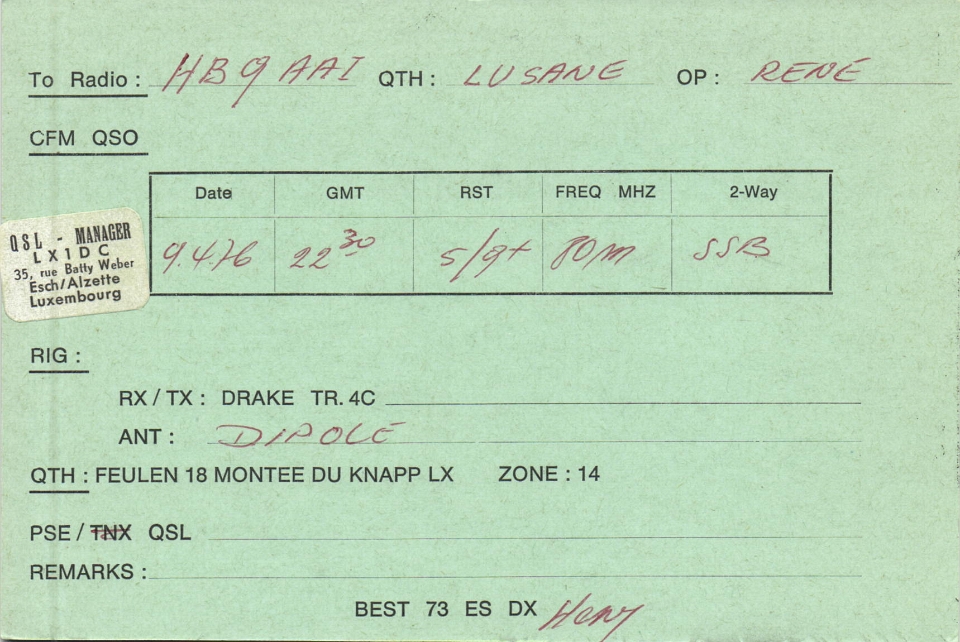 To Radio : HB9AAI QTH : LUSANE OP : RENE
CFM QSO
Date GMT RST FREQ MHZ 2-Way
9.4.76 22 30 5/9+ 80m SSB
QSL - MANAGER
LX1DC
35, rue Batty Weber
Esch/Alzette
Luxembourg
RIG :
RX / TX : DRAKE TR. 4C
ANT : DIPOLE
QTH : FEULEN 18 MONTEE DU KNAPP LX ZONE : 14
PSE / TNX QSL
REMARKS :
BEST 73 ES DX Heny